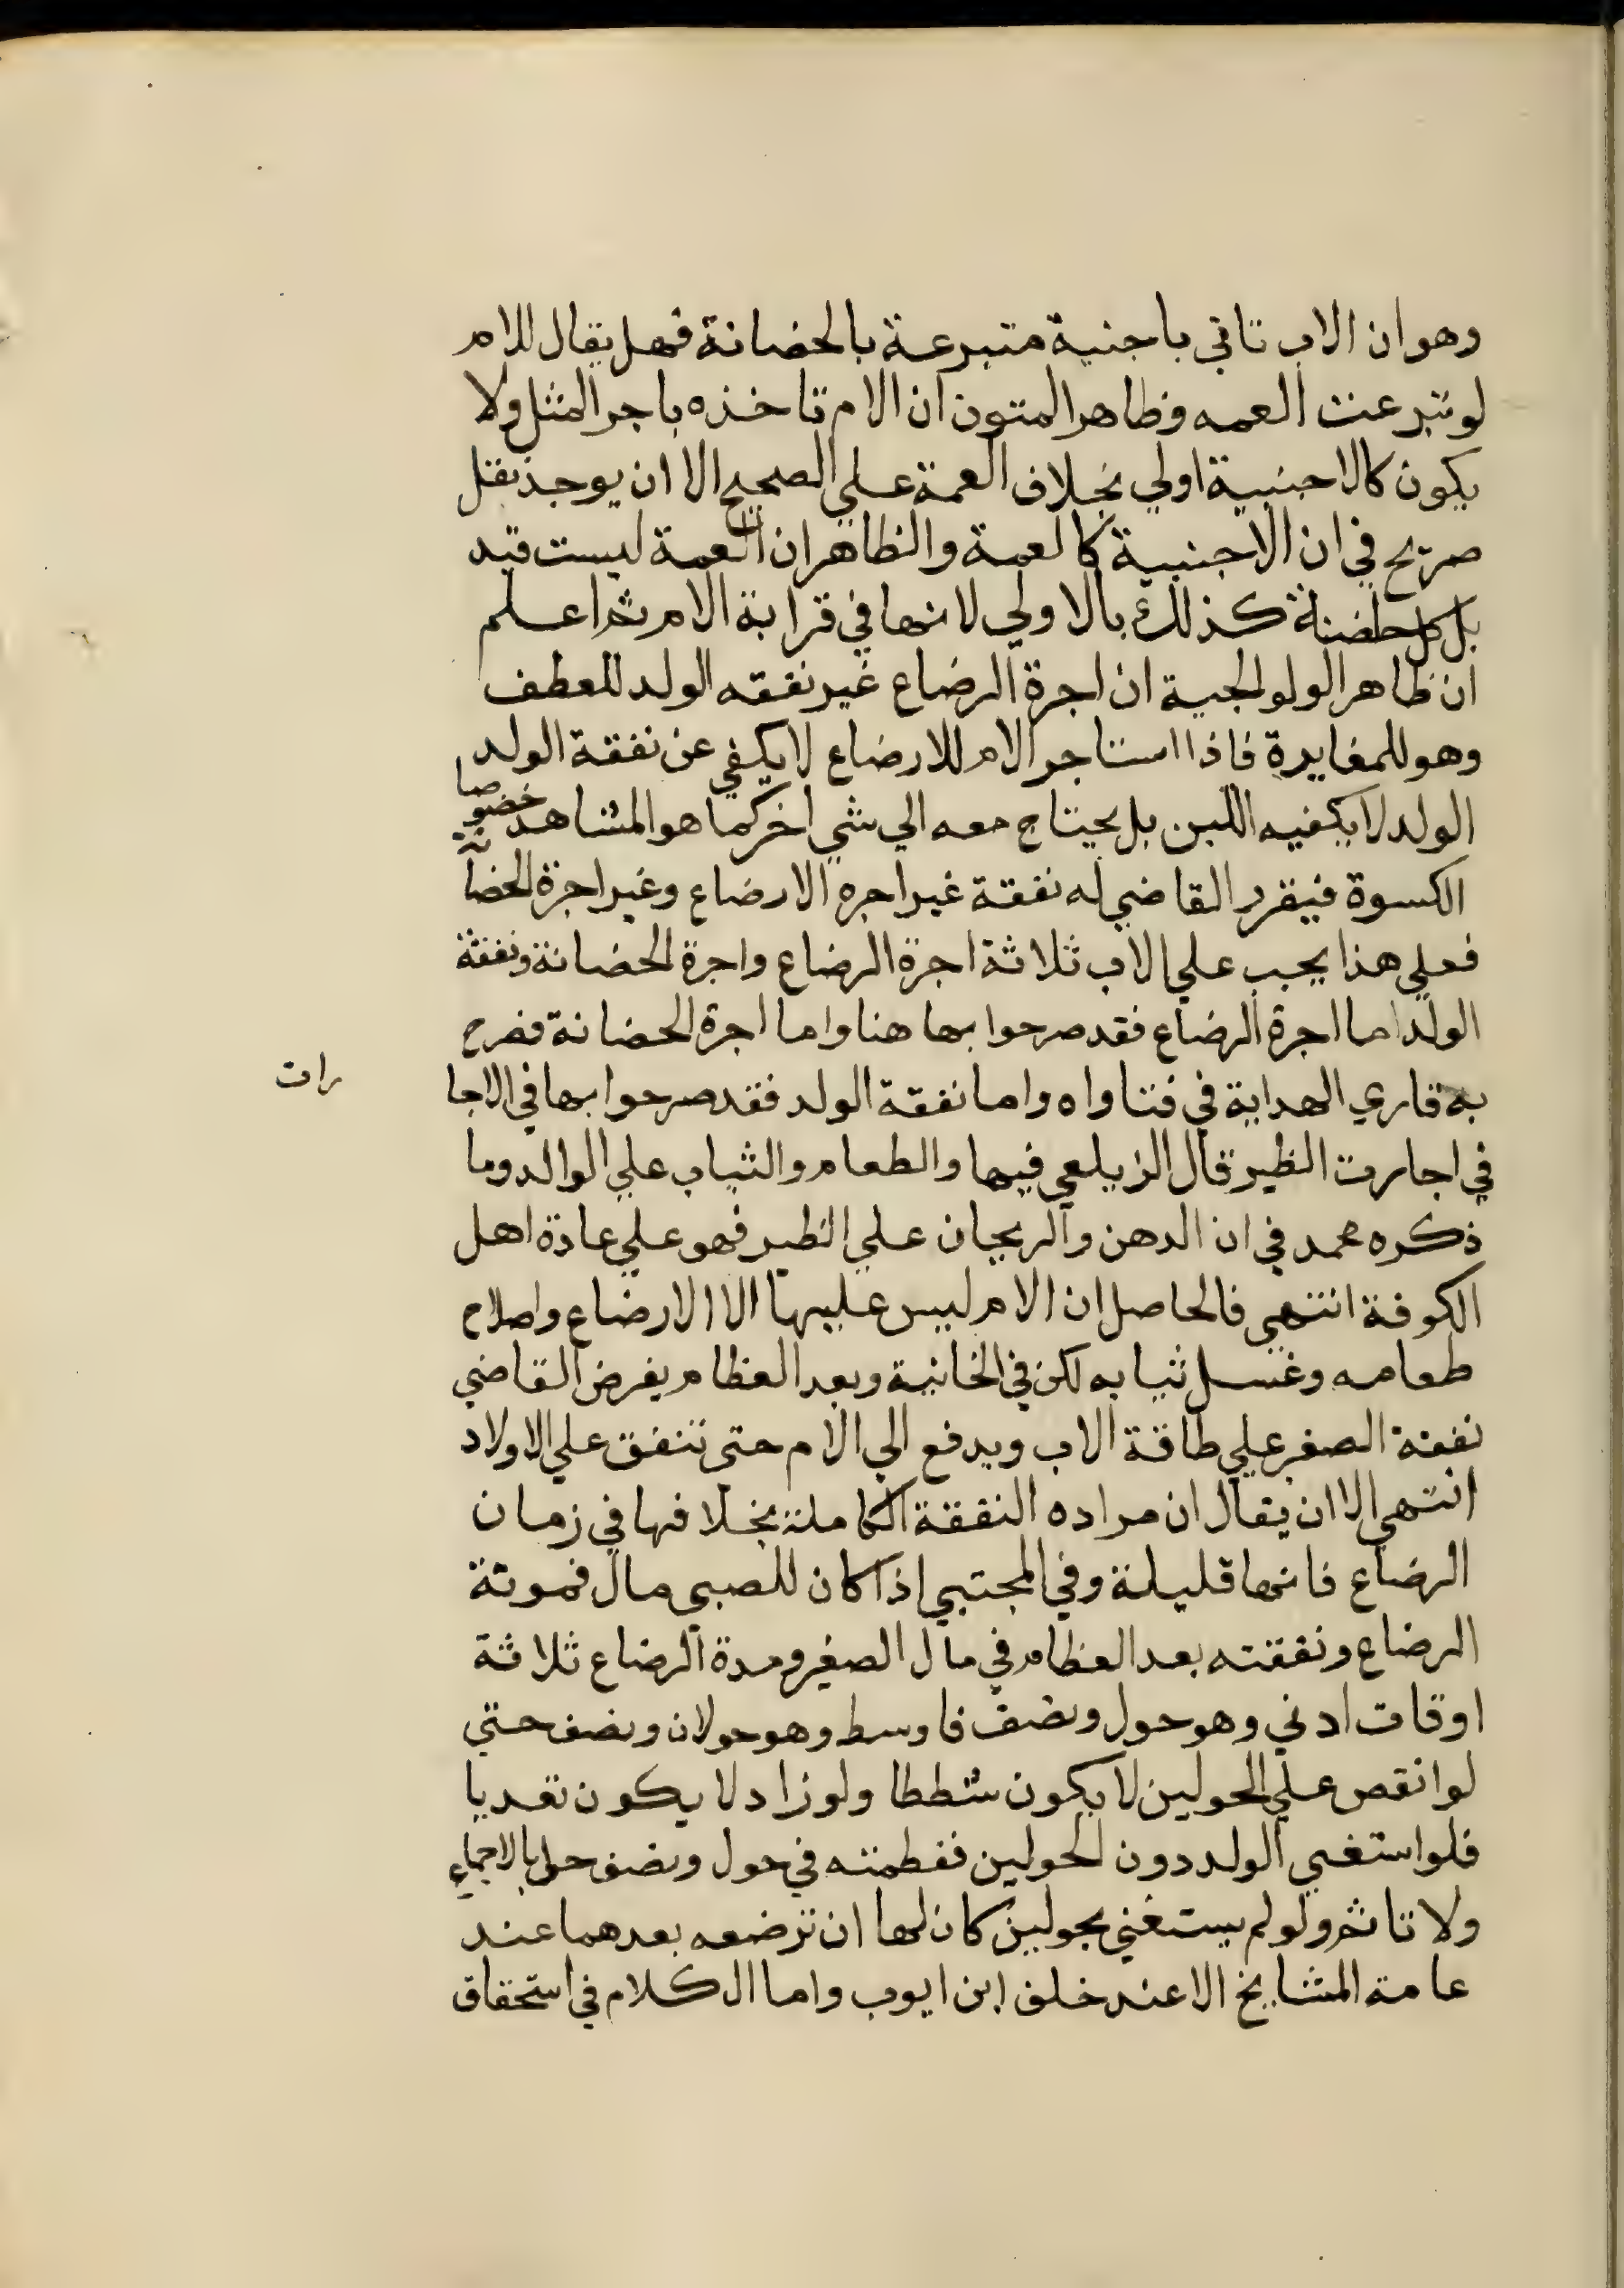 وهوان الاب تاتي باجنبية متبرعة بالحضانة فهل يقال للام
لو تبرعت العمه وظاهر المتون ان الام تاخذه باجر المثل ولا
يكون كالاجنبية اولي بخلاف العمة علي الصحيح الا ان يوجد نقل
صريح في ان الاجنبية كالعمة والظاهر ان العمة ليست قيد
بل كل حاضنة كذلك بالاولي لانها في قرابة الام ثم اعلم
ان ظاهر الولوالجية ان اجرة الرضاع غير نفقه الولد للعطف
وهو للمغايرة فاذا استاجر الام للارضاع لا يكفي عن نفقة الولد
الولد لا يكفيه اللبن بل يحتاج معه الي شي اخر كما هو المشاهد خصوصا
الكسوة فيقرر القاضي له نفقة غير اجره الارضاع وغير اجرة الحضانة
فعلي هذا يجب علي الاب ثلاثة اجرة الرضاع واجرة الحضانة ونفقة
الولد اما اجرة الرضاع فقد صرحوا بها هنا واما اجرة الحضانة فصرح
به قاري الهداية في فتاواه واما نفقة الولد فقد صرحوا بها في الاجا رات
في اجارت الظير قال الزيلعي فيها والطعام والثياب علي الوالد وما
ذكره محمد في ان الدهن والريحان علي الظير فهو علي عادة اهل
الكوفة انتهي فالحاصل ان الام ليس عليها الا الارضاع واصلاح
طعامه وغسل ثيابه لكن في الخانية وبعد الفطام يفرض القاضي
نفقة الصغير علي طاقة الاب ويدفع الي الام حتي تنفق علي الاولاد
انتهي الا ان يقال ان مراده النفقة الكاملة بخلافها في زمان
الرضاع فانها قليلة وفي المجتبي اذا كان للصبي مال فمونة
الرضاع ونفقته بعد الفطام في مال الصغير ومدة الرضاع ثلاثة
اوقات ادني وهو حول ونصف فاوسط وهو حولان ونصف حتي
لو انقص علي الحولين لا يكون شططا ولو زاد لا يكون تعديا
فلو استغني الولد دون الحولين ففطمته في حول ونصف حل بالاجماع
ولا تاثم ولو لم يستغني بحولين كان لها ان ترضعه بعدهما عند
عامة المشايخ الا عند خلف ابن ايوب واما الكلام في استحقاق